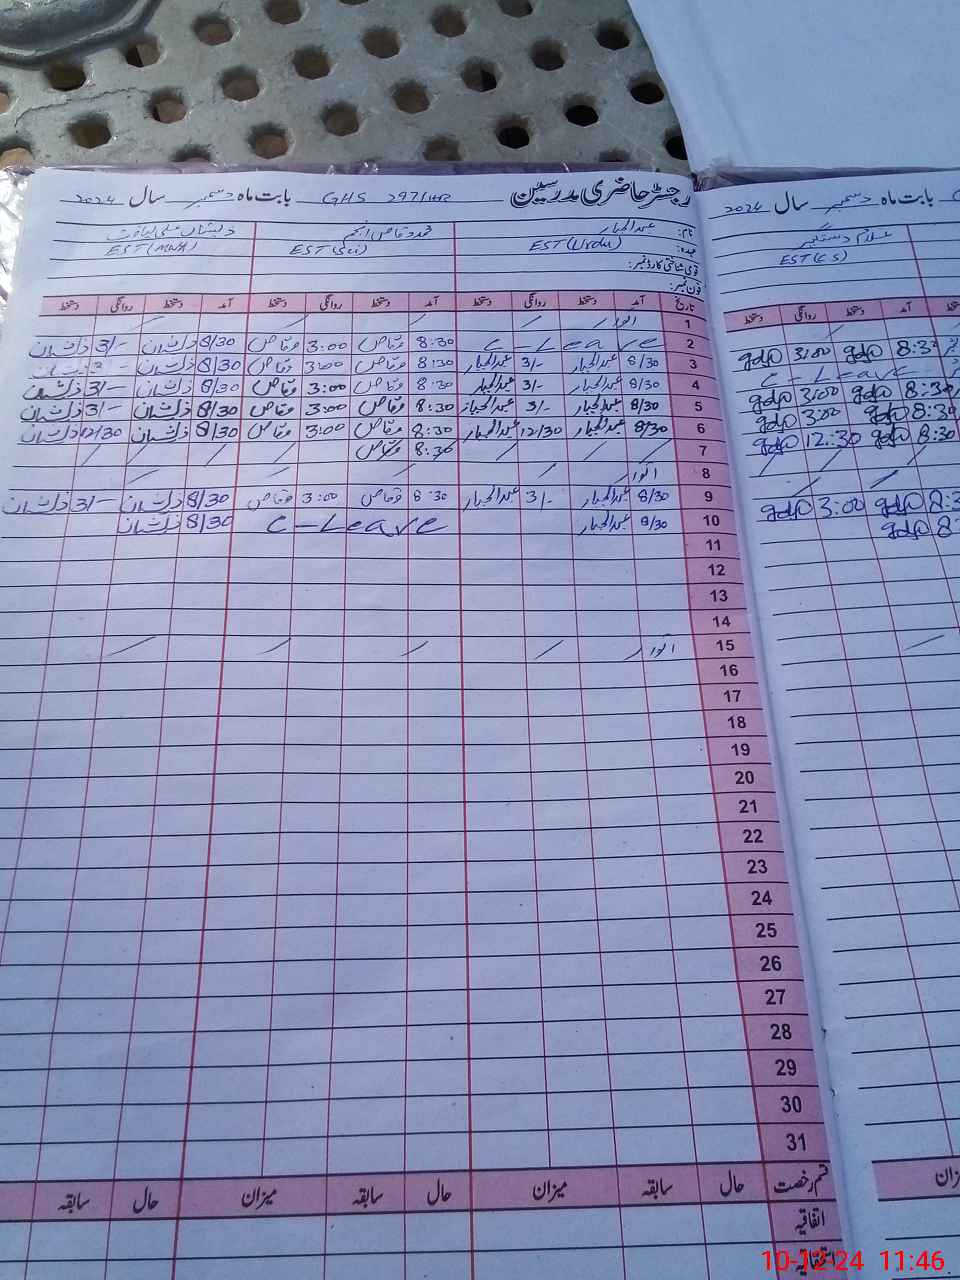 رجسٹر حاضری مدرسین GHS 297/HR بابت ماہ دسمبر سال 2024
نام: عبدالجبار محمد وقاص انجم ذیشان علی لیاقت
عہدہ: EST (Urdu) EST (Sci) EST (MNA)
قومی شناختی کارڈ نمبر:
فون نمبر:
تاریخ آمد دستخط روانگی دستخط آمد دستخط روانگی دستخط آمد دستخط روانگی دستخط
1 اتوار / / / / /
2 C-Leave 8:30 وقاص 3:00 وقاص 8/30 ذیشان 3/- ذیشان
3 8/30 عبدالجبار 3/- عبدالجبار 8:30 وقاص 3:00 وقاص 8/30 ذیشان 3/- ذیشان
4 8/30 عبدالجبار 3/- عبدالجبار 8:30 وقاص 3:00 وقاص 8/30 ذیشان 3/- ذیشان
5 8/30 عبدالجبار 3/- عبدالجبار 8:30 وقاص 3:00 وقاص 8/30 ذیشان 3/- ذیشان
6 8/30 عبدالجبار 12/30 عبدالجبار 8:30 وقاص 3:00 وقاص 8/30 ذیشان 12/30 ذیشان
7 / / / 8:30 وقاص / / / / / /
8 اتوار / / / / /
9 8/30 عبدالجبار 3/- عبدالجبار 8:30 وقاص 3:00 وقاص 8/30 ذیشان 3/- ذیشان
10 8/30 عبدالجبار C-Leave 8/30 ذیشان
11
12
13
14
15 اتوار / / / / /
16
17
18
19
20
21
22
23
24
25
26
27
28
29
30
31
قسم رخصت حال سابقہ میزان حال سابقہ میزان حال سابقہ
اتفاقیہ
بابت ماہ دسمبر سال 2024
غلام دستگیر
EST (CS)
آمد دستخط روانگی دستخط
8:3 3:00
C-Leave
8:30 3:00
8:30 3:00
8:30 12:30
8:3 3:00
8:
10-12-24 11:46